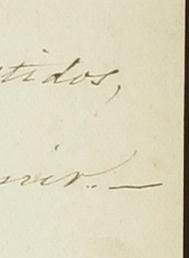 tidos,
rir.. —